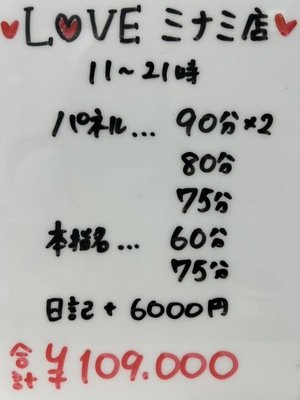 ♥LOVE ミナミ店♥
11〜21時
パネル... 90分×2
80分
75分
本指名... 60分
75分
日記 + 6000円
合計 ¥109.000